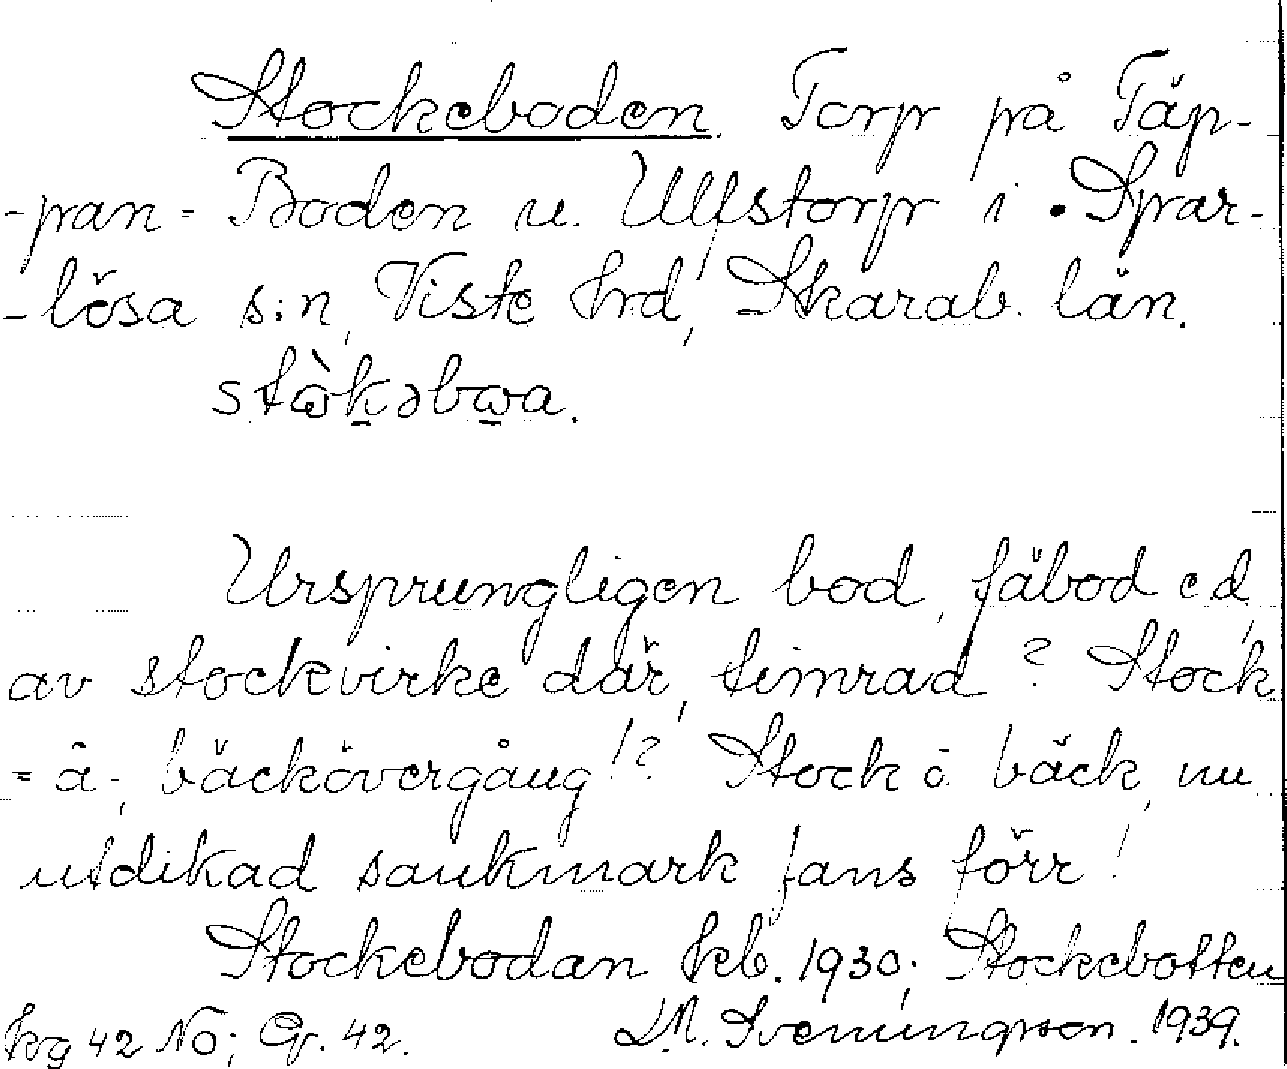 Stockeboden. Torp på Täp-
-pan - Boden u. Ulfstorp i . Spar-
-lösa s:n, Viste hrd, Skarab. län.
stɷ̀kəbɷa.
Ursprungligen bod, fäbod e d,
av stockvirke där, timrad? Stock
= å-, bäckövergång!? Stock ö bäck, nu
utdikad sankmark fans förr!
Stockebodan kb. 1930; Stockebotten
kg 42 No; Gr. 42. L.M. Svenningsson. 1939.